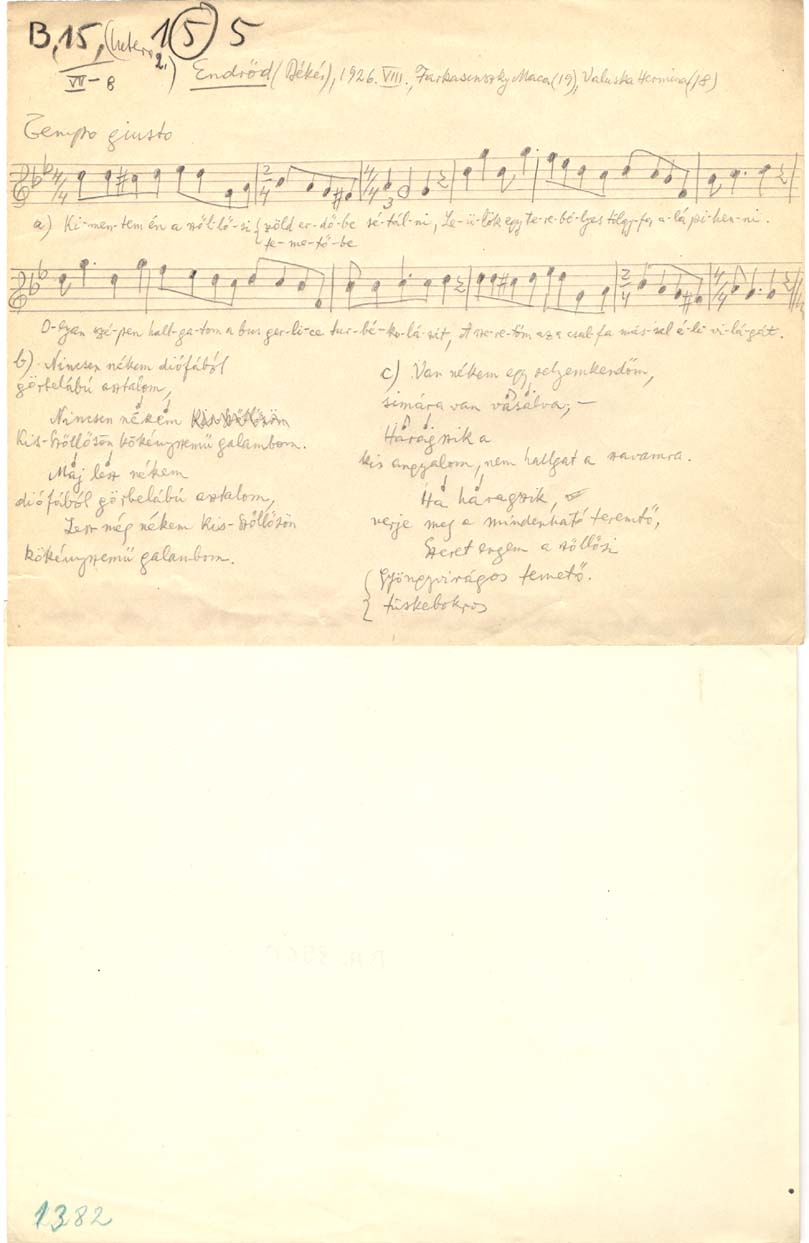 B, 15, (heter. 2.) 1 5 5
VII-8
Endrőd (Békés), 1926. VIII., Farkasinszky Maca (19), Valuska Hermina (18)
Tempo giusto
a) Ki-men-tem én a ződ-lő-si { zöld er-dő-be sé-tál-ni, Le-ü-lök egy te-re-bé-lyes tölgy-fa, a-lá pi-hen-ni.
te-me-tő-be
O-lyan szé-pen hall-ga-tom a bus ger-li-ce tur-bé-ko-lá-sát, A sze-re-tőm az a csal-fa más-sal é-li vi-lá-gát.
b) Nincsen nékem diófából
görbelábú asztalom,
Nincsen nékem
Kis-Szőllősön kökényszemű galambom.
Máj lesz nékem
diófából görbelábú asztalom,
Lesz még nékem Kis-Szőllősön
kökényszemű galambom.
c) Van nékem egy selyemkendőm,
simára van vasalva, –
Haragszik a
kis angyalom, nem hallgat a szavamra.
Ha haragszik,
verje meg a mindenható teremtő,
Szeret engem a szőllősi
{ Gyöngyvirágos temető.
tüskebokros
1382